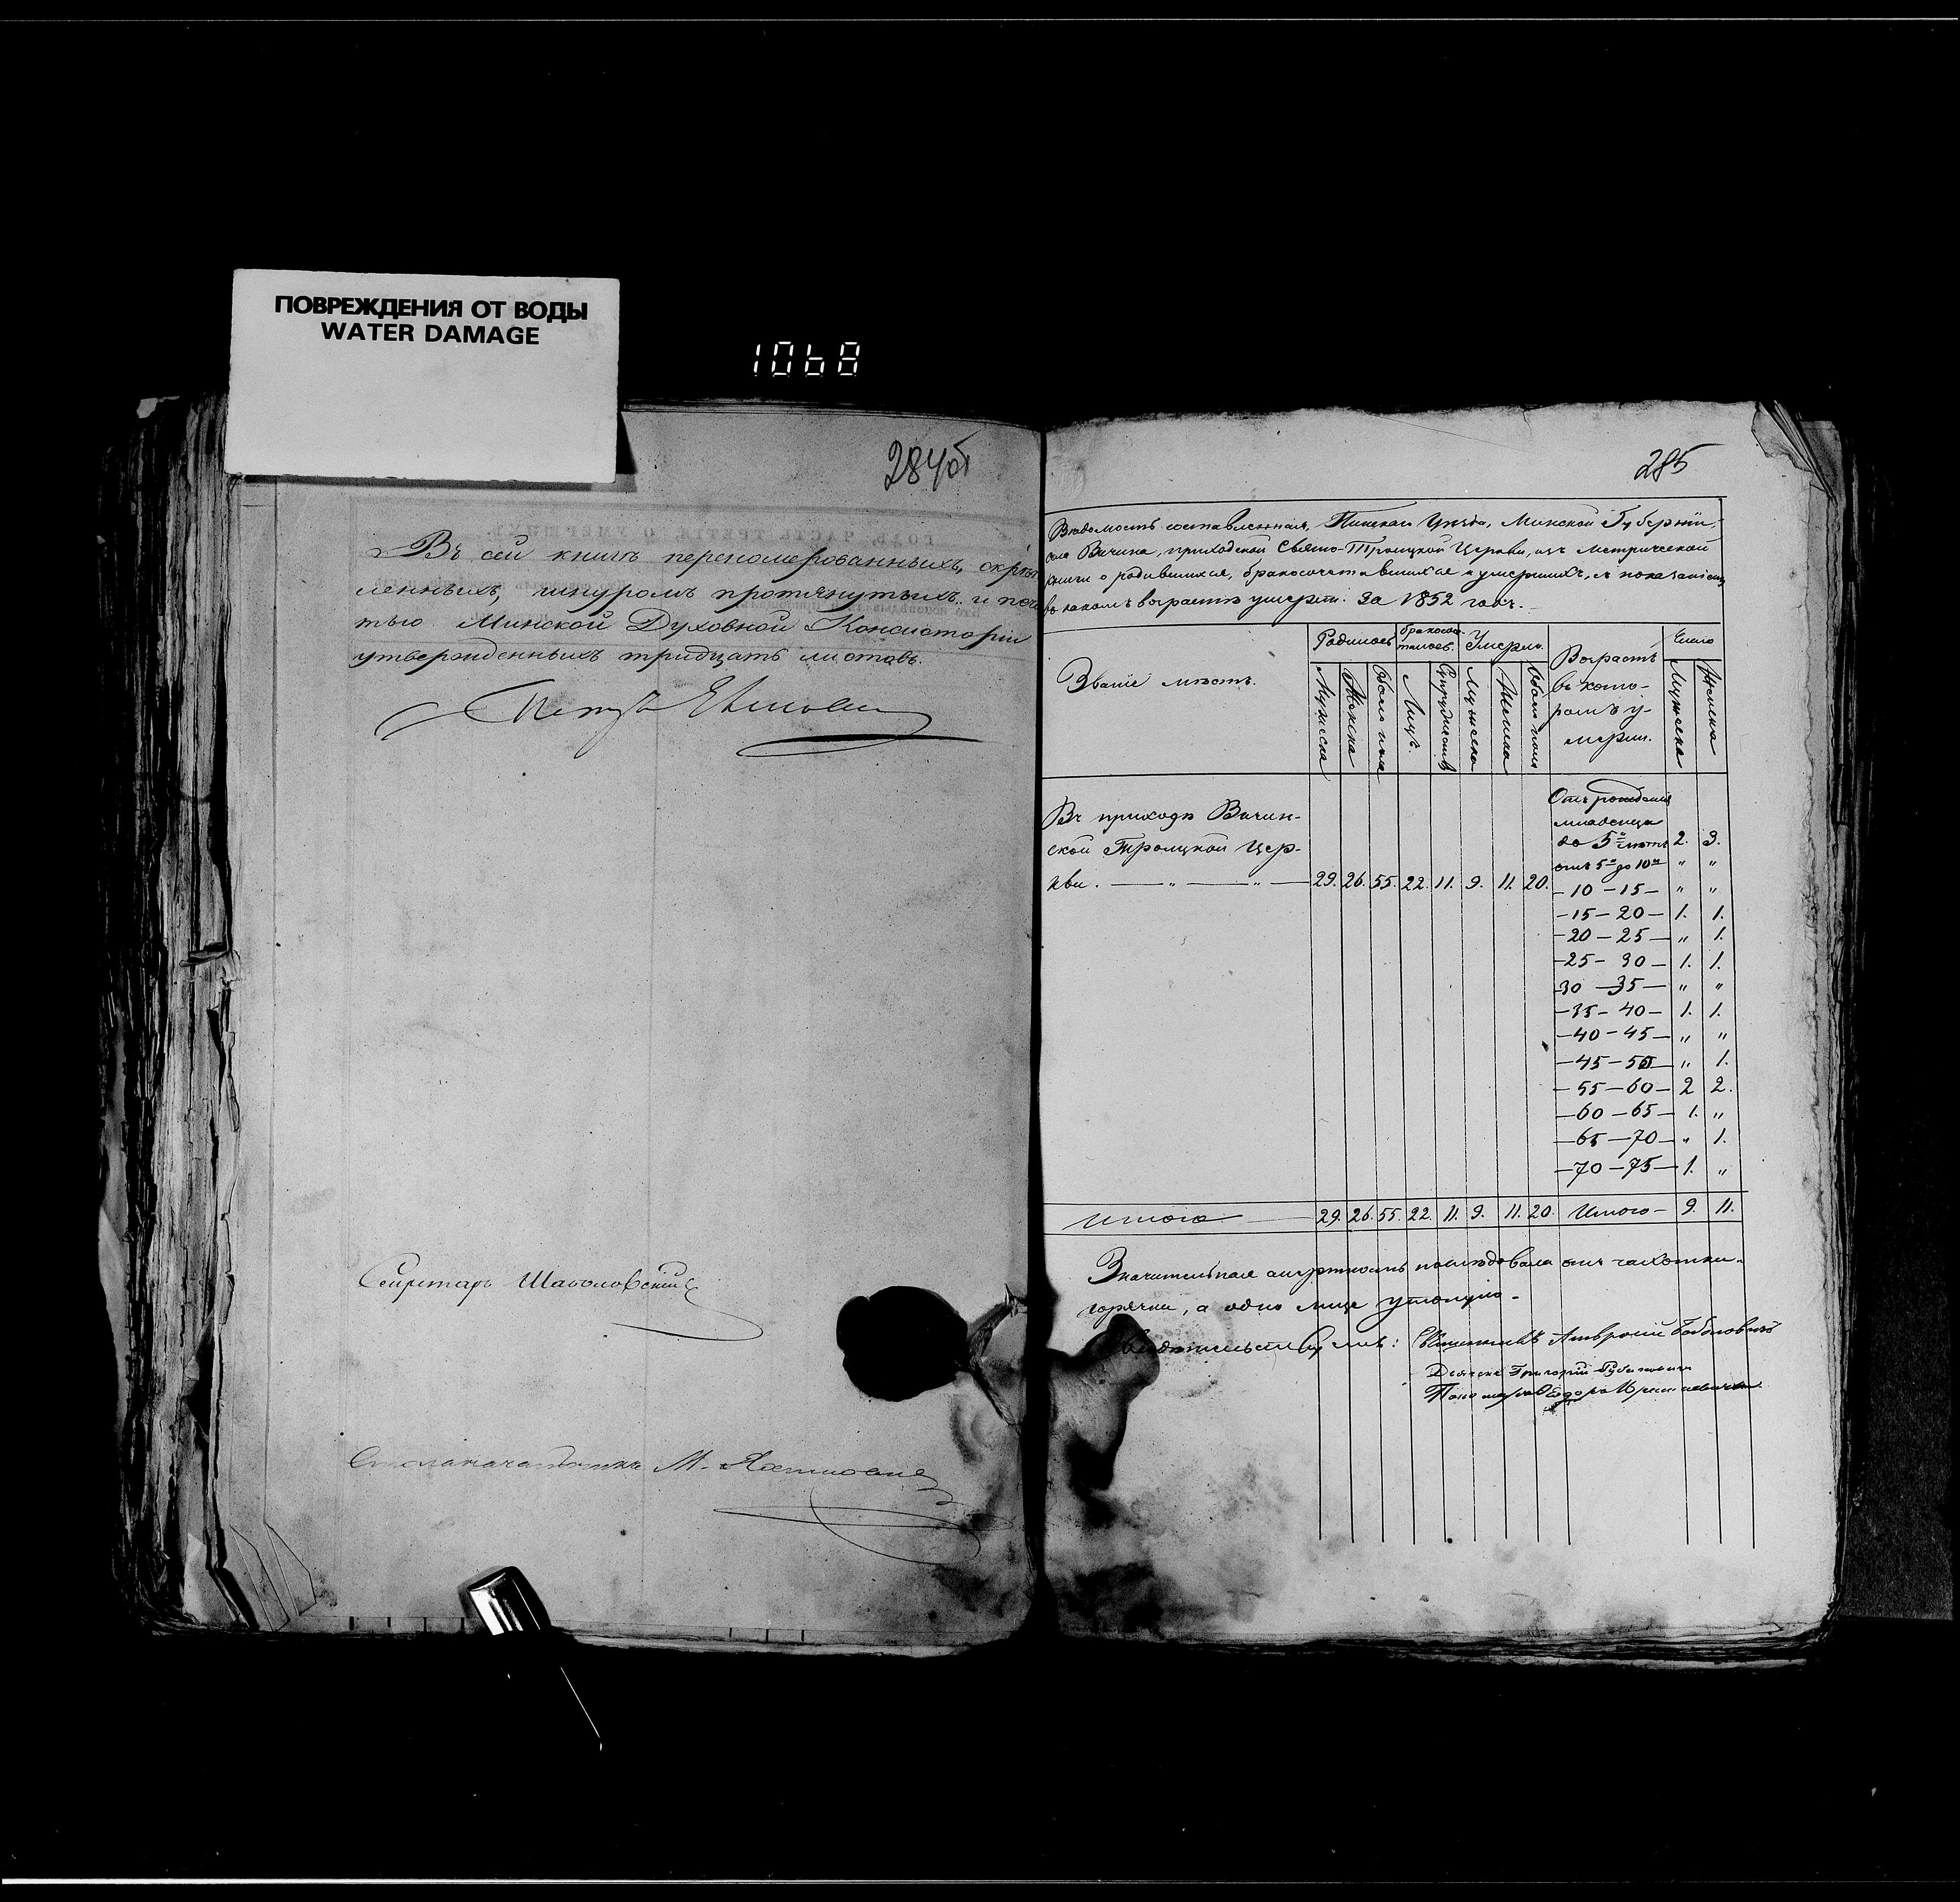 ПОВРЕЖДЕНИЯ ОТ ВОДЫ
WATER DAMAGE
1068
284об
Въ сей книгѣ перенумерованныхъ, скрѣп
ленныхъ, шнуромъ протянутыхъ и печа
тью Минской Духовной Консисторіи
утвержденныхъ тридцать листовъ.
Секретарь
Столоначальникъ М.
285
Вѣдомость составленная, Пинскаго Уѣзда, Минской Губерніи,
села Вичина, приходской Свято-Троицкой Церкви, изъ метрической
книги о родившихся, бракосочетавшихся и умершихъ, съ показаніемъ
въ какомъ возрастѣ умерли. За 1852 годъ.
Званіе мѣстъ.
Родилось
бракосоче-
талось.
Умерло.
Возрастъ
въ кото-
ромъ у-
мерли.
Число
Мужеска
Женска
Обоего пола
Лицъ.
Супружествъ
Мужеска
Женска
Обоего пола
Мужеска
Женска
Въ приходѣ Вичин-
ской Троицкой Цер-
кви. — „ — „ — 29. 26. 55. 22. 11. 9. 11. 20.
Отъ рожденія
младенца
до 5и лѣтъ 2. 3.
отъ 5и до 10и „ „
-10-15- „ „
-15-20- 1. 1.
-20-25- „ 1.
-25-30- 1. 1.
30-35- „ „
-35-40- 1. 1.
-40-45- „ „
-45-50- „ 1.
-55-60- 2 2.
-60-65- 1. „
-65-70- „ 1.
-70-75- 1. „
Итого 29. 26. 55. 22. 11. 9. 11. 20. Итого- 9. 11.
Значительная смертность послѣдовала отъ чахотки
горячки, а одно лице утонуло.
Священникъ Амвросій
Дьячекъ Григорій
Пономарь Ѳедоръ